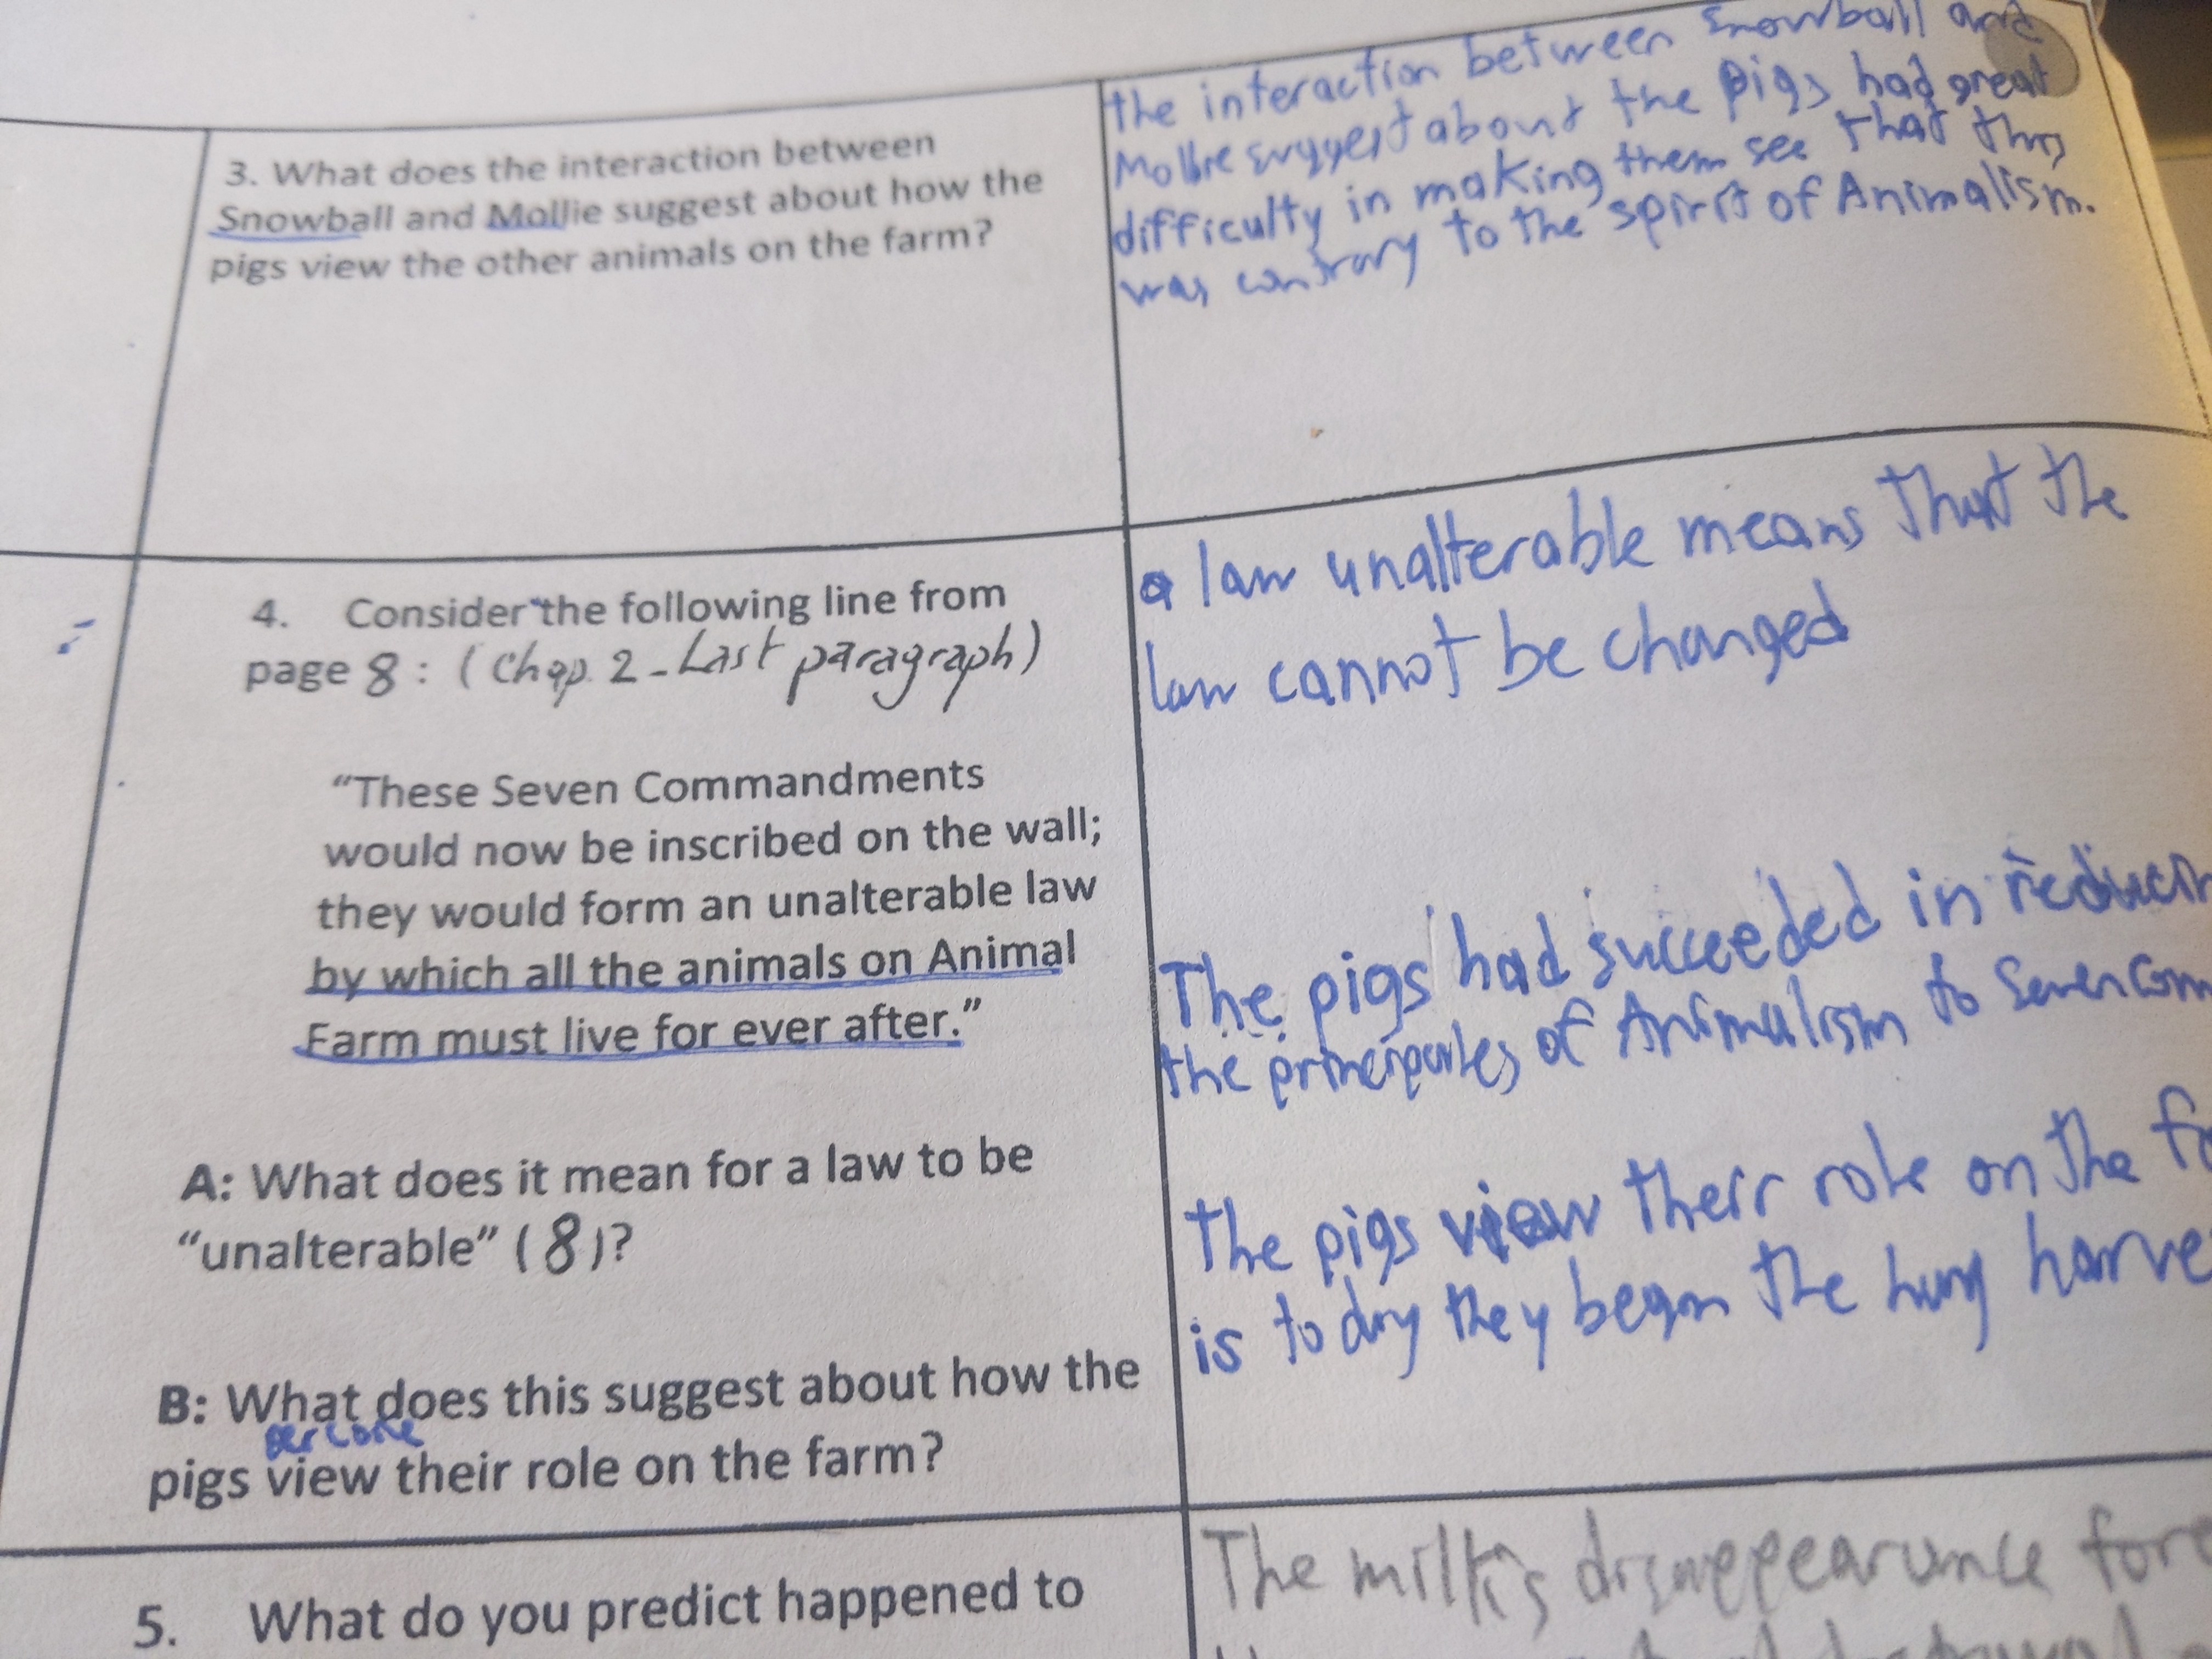 3. What does the interaction between
Snowball and Mollie suggest about how the
pigs view the other animals on the farm?
the interaction between Snowball and
Mollie suggest about the pigs had great
difficulty in making them see that this
was contrary to the spirit of Animalism.
4. Consider the following line from
page 8 : (Chap. 2 - Last paragraph)
"These Seven Commandments
would now be inscribed on the wall;
they would form an unalterable law
by which all the animals on Animal
Farm must live for ever after."
A: What does it mean for a law to be
"unalterable" (8)?
B: What does this suggest about how the
pigs view their role on the farm?
a law unalterable means that the
law cannot be changed
The pigs had succeeded in
the of Animalism to Seven
the pigs view their role on the
is to they began the
5. What do you predict happened to
The